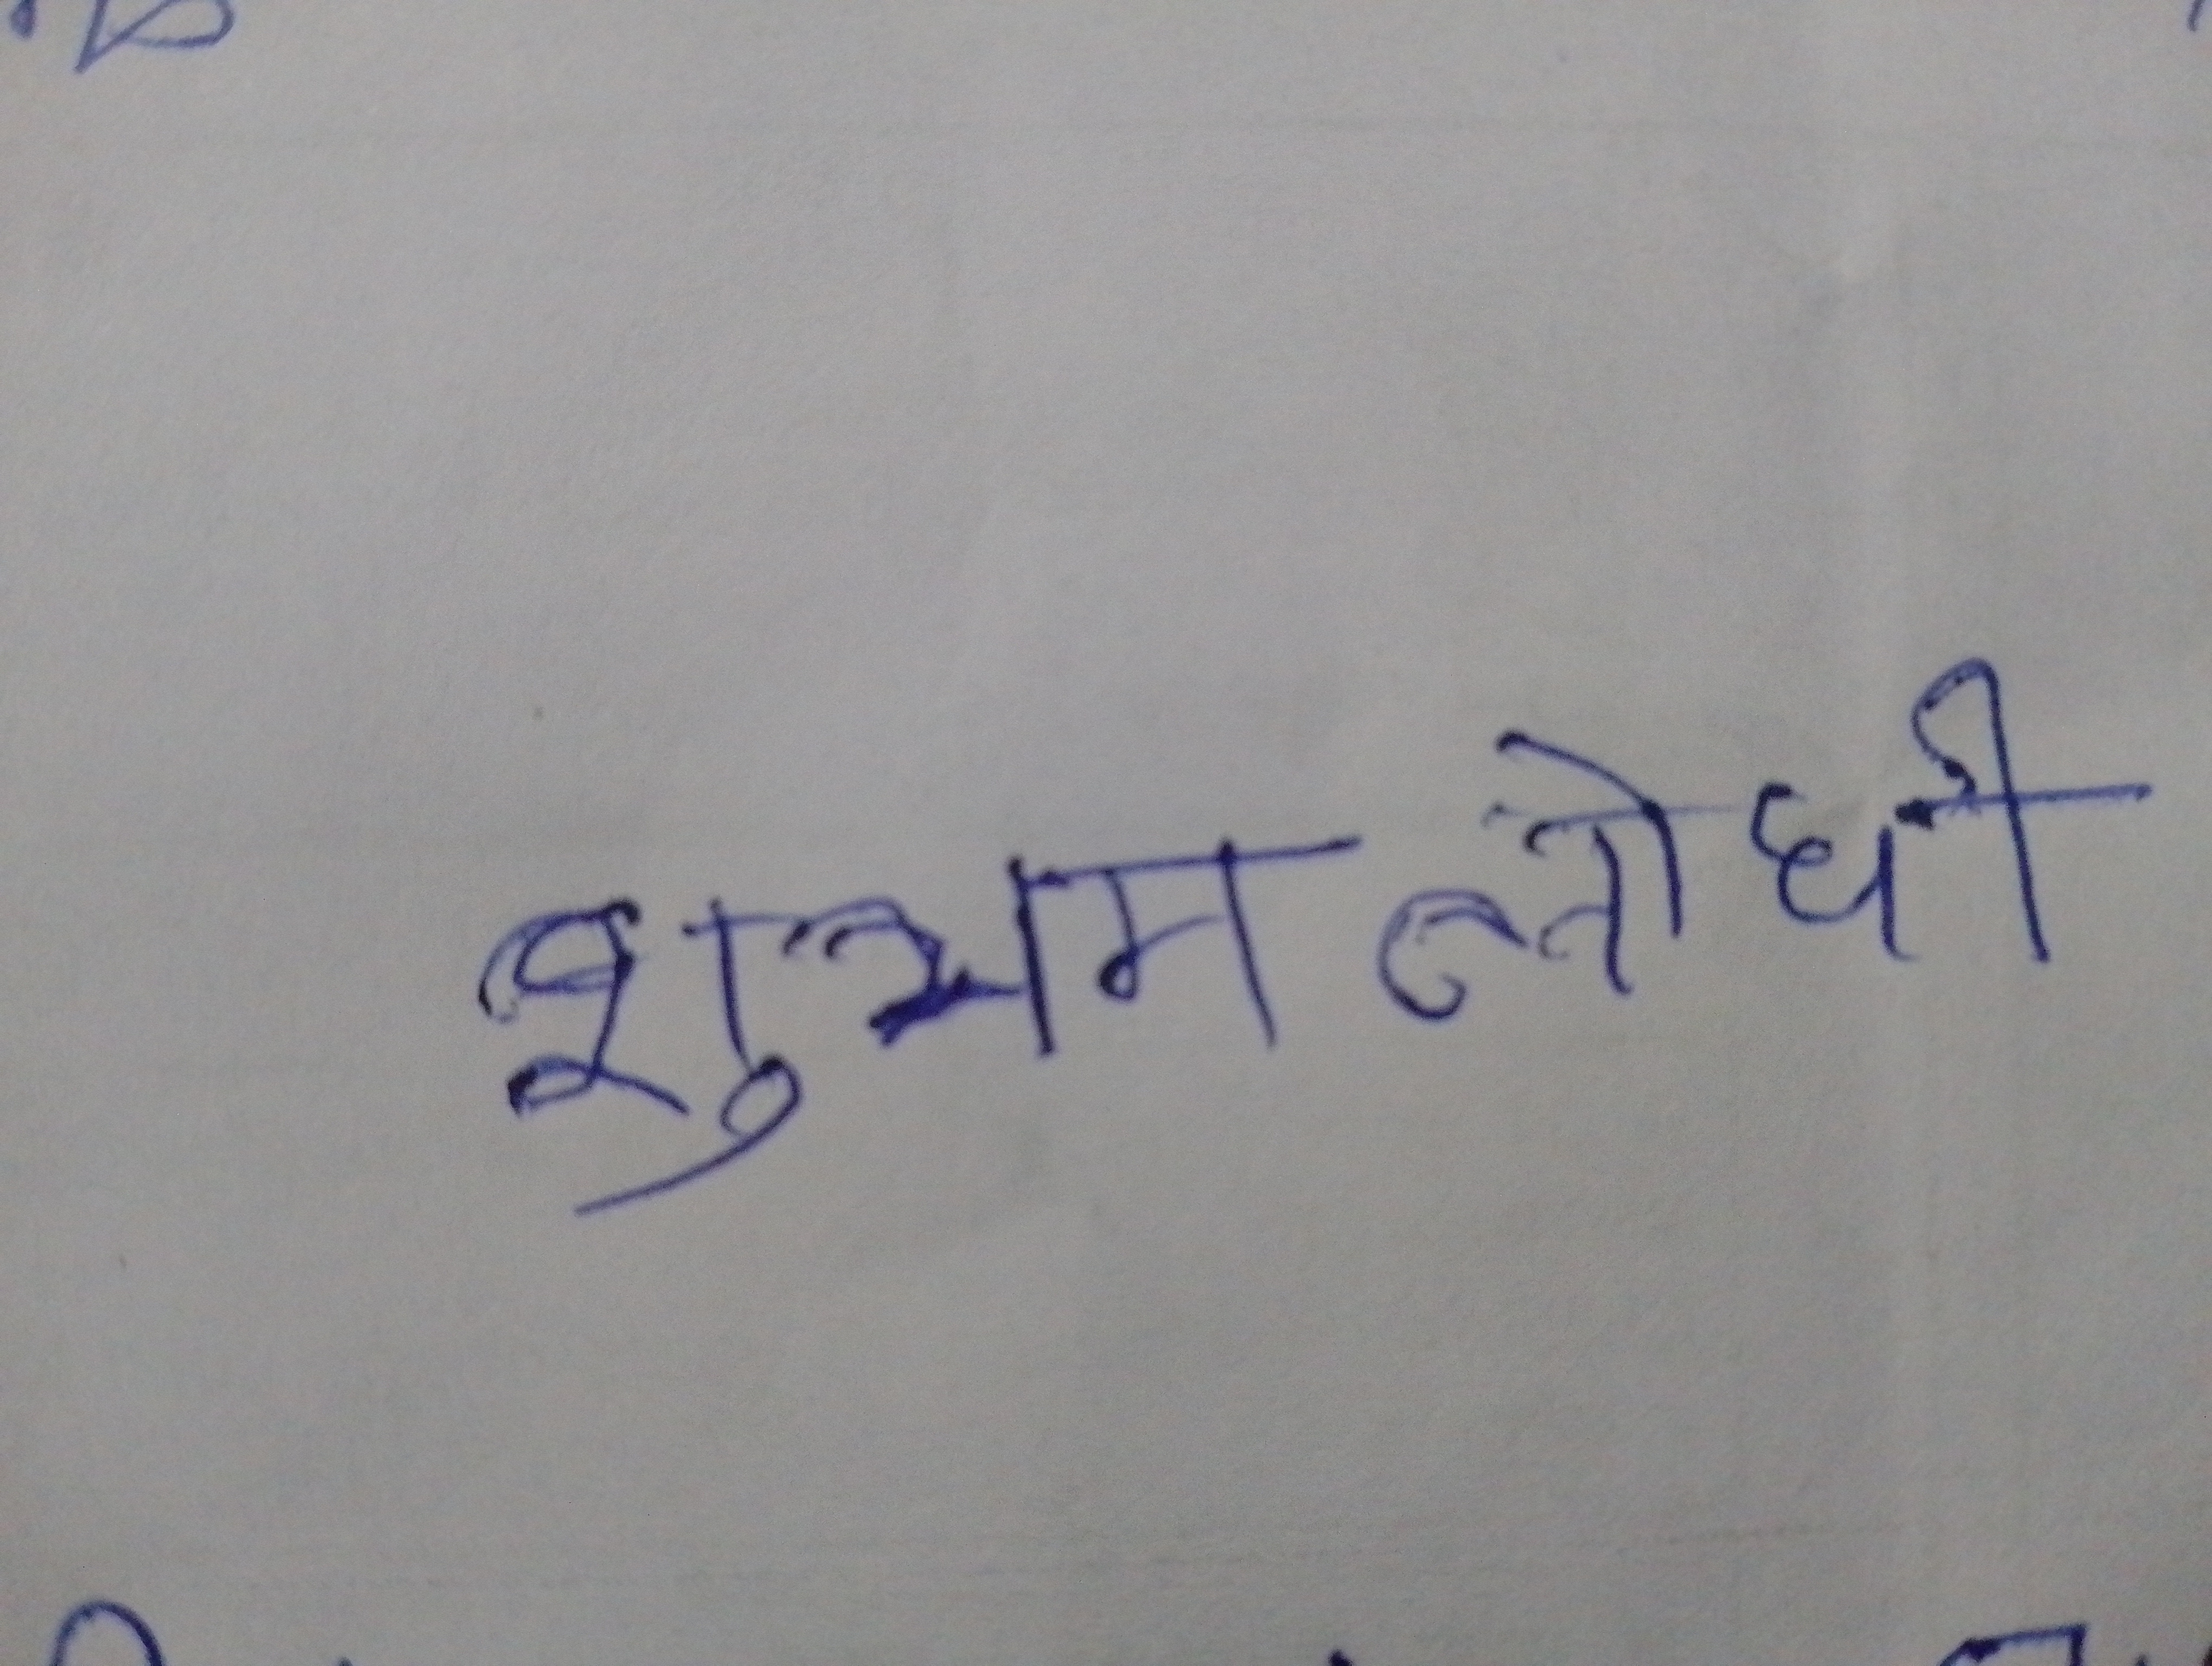 शुभम लोधी